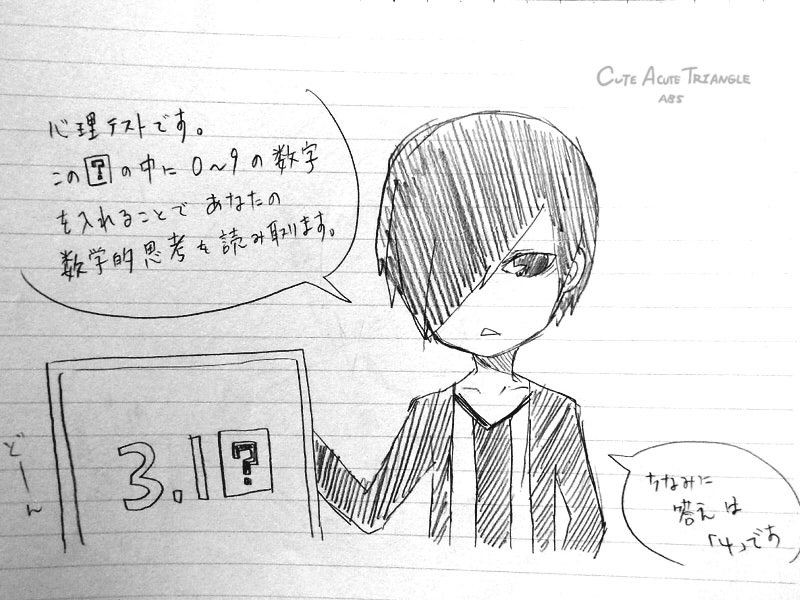 CUTE ACUTE TRIANGLE
ABS
心理テストです。
この?の中に0~9の数字
を入れることであなたの
数学的思考を読み取ります。
3.1?
どーん
ちなみに
答えは
「4」です